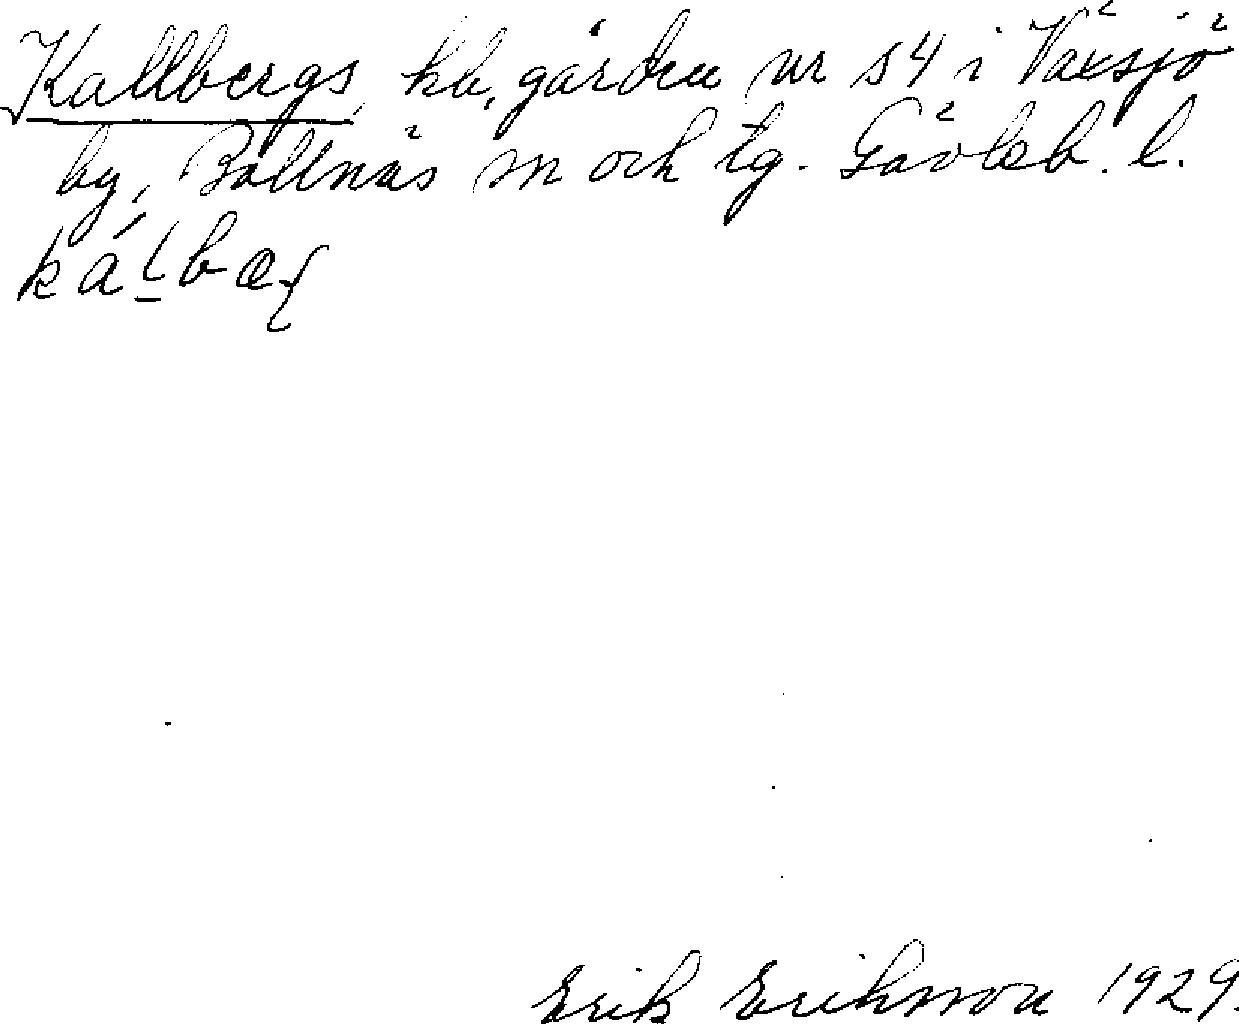 Kallbergs, hb, gården nr 54 i Växsjö
by, Bollnäs sn och tg. Gävleb. l.
Erik Erikson 1929.